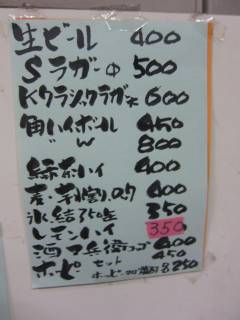 生ビール 400
Sラガー中 500
Kクラシックラガー大 600
角ハイボール 450
〃 W 800
緑茶ハイ 400
麦・芋割り,ロック 400
氷結350缶 350
レモンハイ 350
酒 兵衛 400
ホッピーセット 450
250